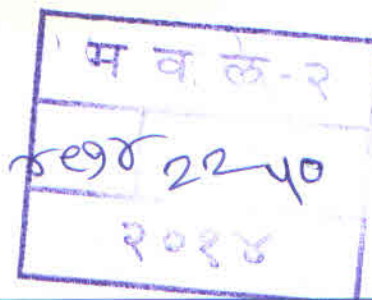 म व. ल-२
४९१४ २२५०
२०१४